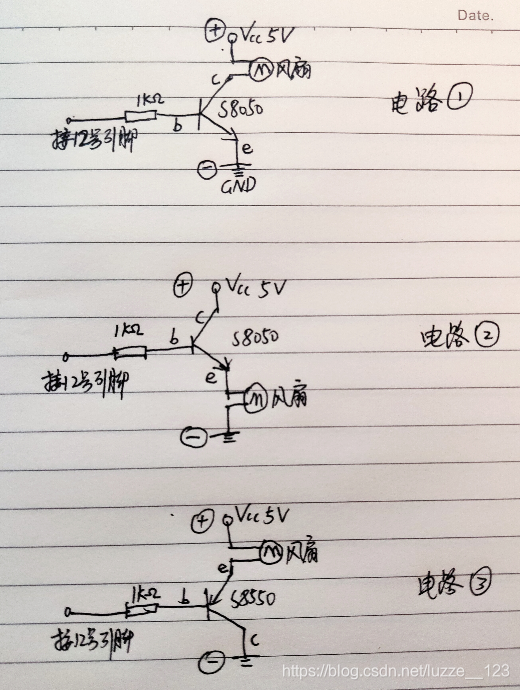 Date.
+ Vcc 5V
c M 风扇
1KΩ
S8050
b
接12号引脚
e
−
GND
电路①
+ Vcc 5V
c
1KΩ
b
S8050
接12号引脚
e
M 风扇
−
电路②
+ Vcc 5V
M 风扇
e
1KΩ
b
S8550
接12号引脚
c
−
电路③
https://blog.csdn.net/luzze__123